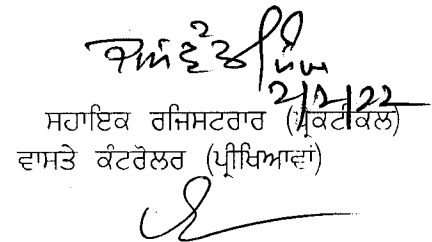 2/2/22
ਸਹਾਇਕ ਰਜਿਸਟਰਾਰ (ਪ੍ਰੈਕਟੀਕਲ)
ਵਾਸਤੇ ਕੰਟਰੋਲਰ (ਪ੍ਰੀਖਿਆਵਾਂ)